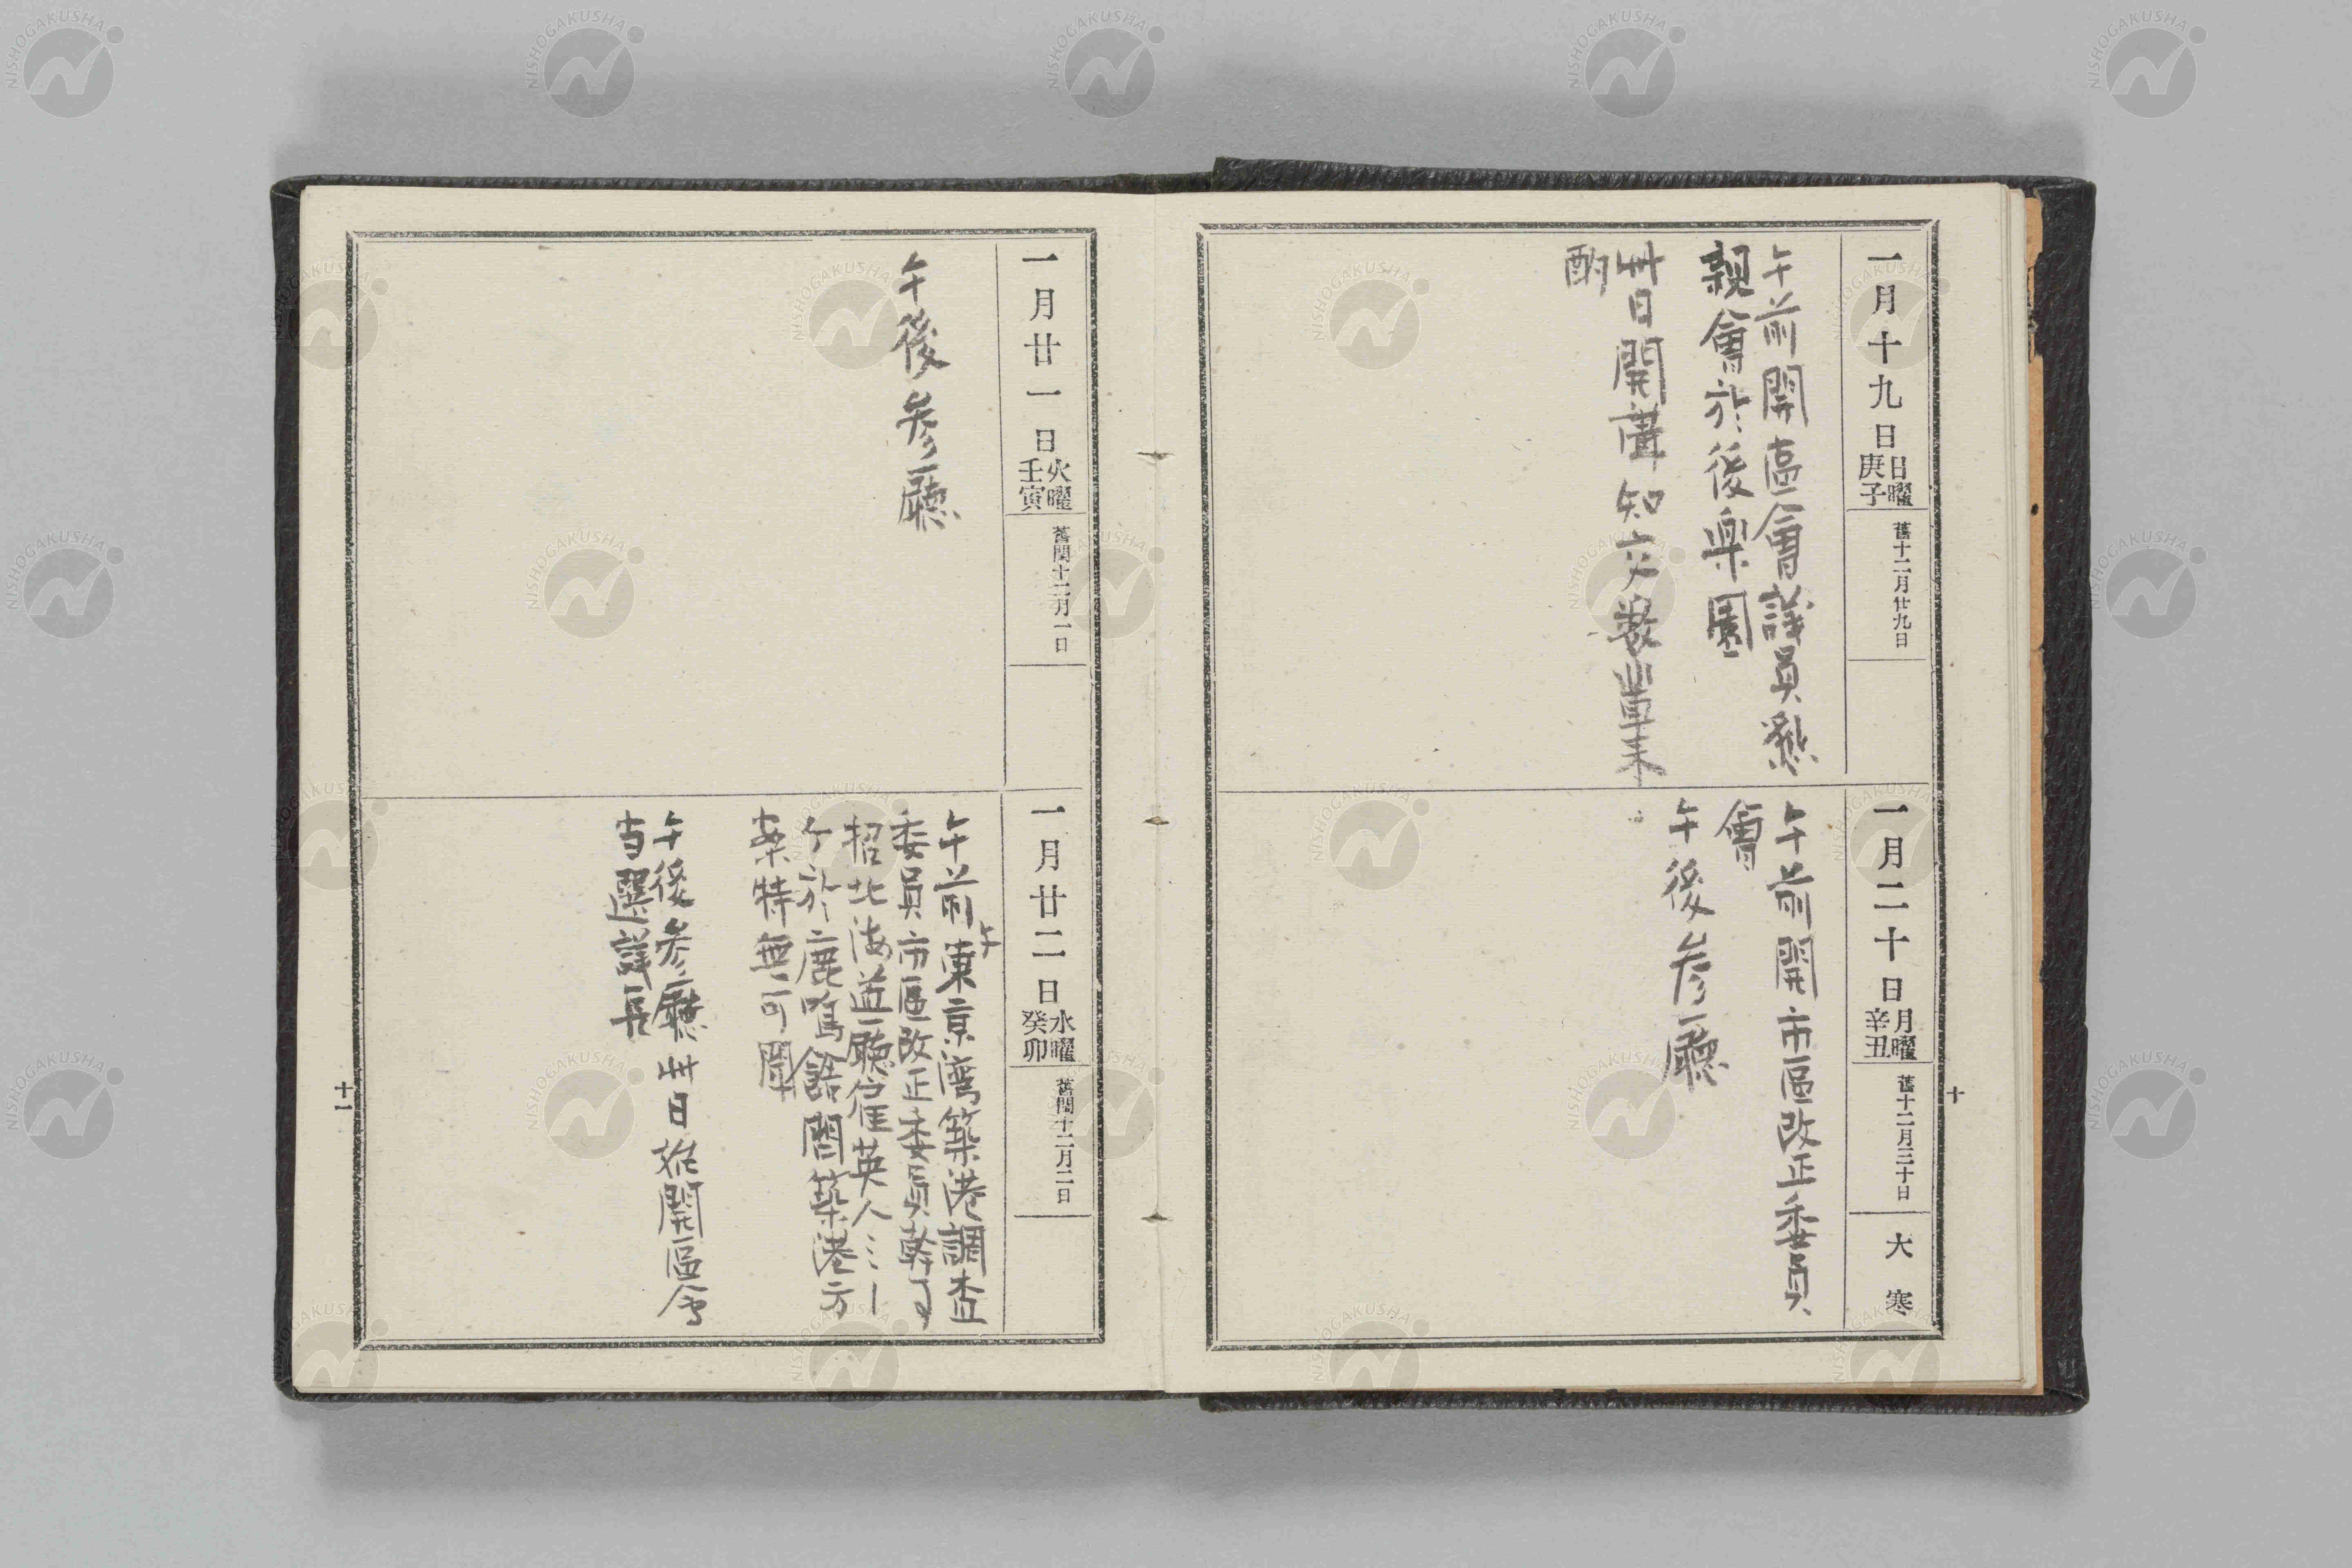 一月十九日
日曜
庚子
舊十二月廿九日
午前開區會議員懇
親會於後樂園
卅日開講知交裝 來
酌
一月二十日
月曜
辛丑
舊十二月三十日
大寒
午前開市區改正委員
會
午後參廳
十
一月廿一日
火曜
壬寅
舊閏十二月一日
午後參廳
一月廿二日
水曜
癸卯
舊閏十二月二日
午前東京湾築港調査
委員市區改正委員幹
招北海道廳雇英人ミ
ク於鹿鳴館聞築港方
案特無可聞
午後參廳卅日 開區会
当選議長
十一
NISHOGAKUSHA